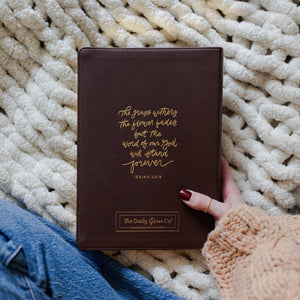 The grass withers
the flower fades
but the
word of our God
will stand
forever
ISAIAH 40:8
The Daily Grace Co.